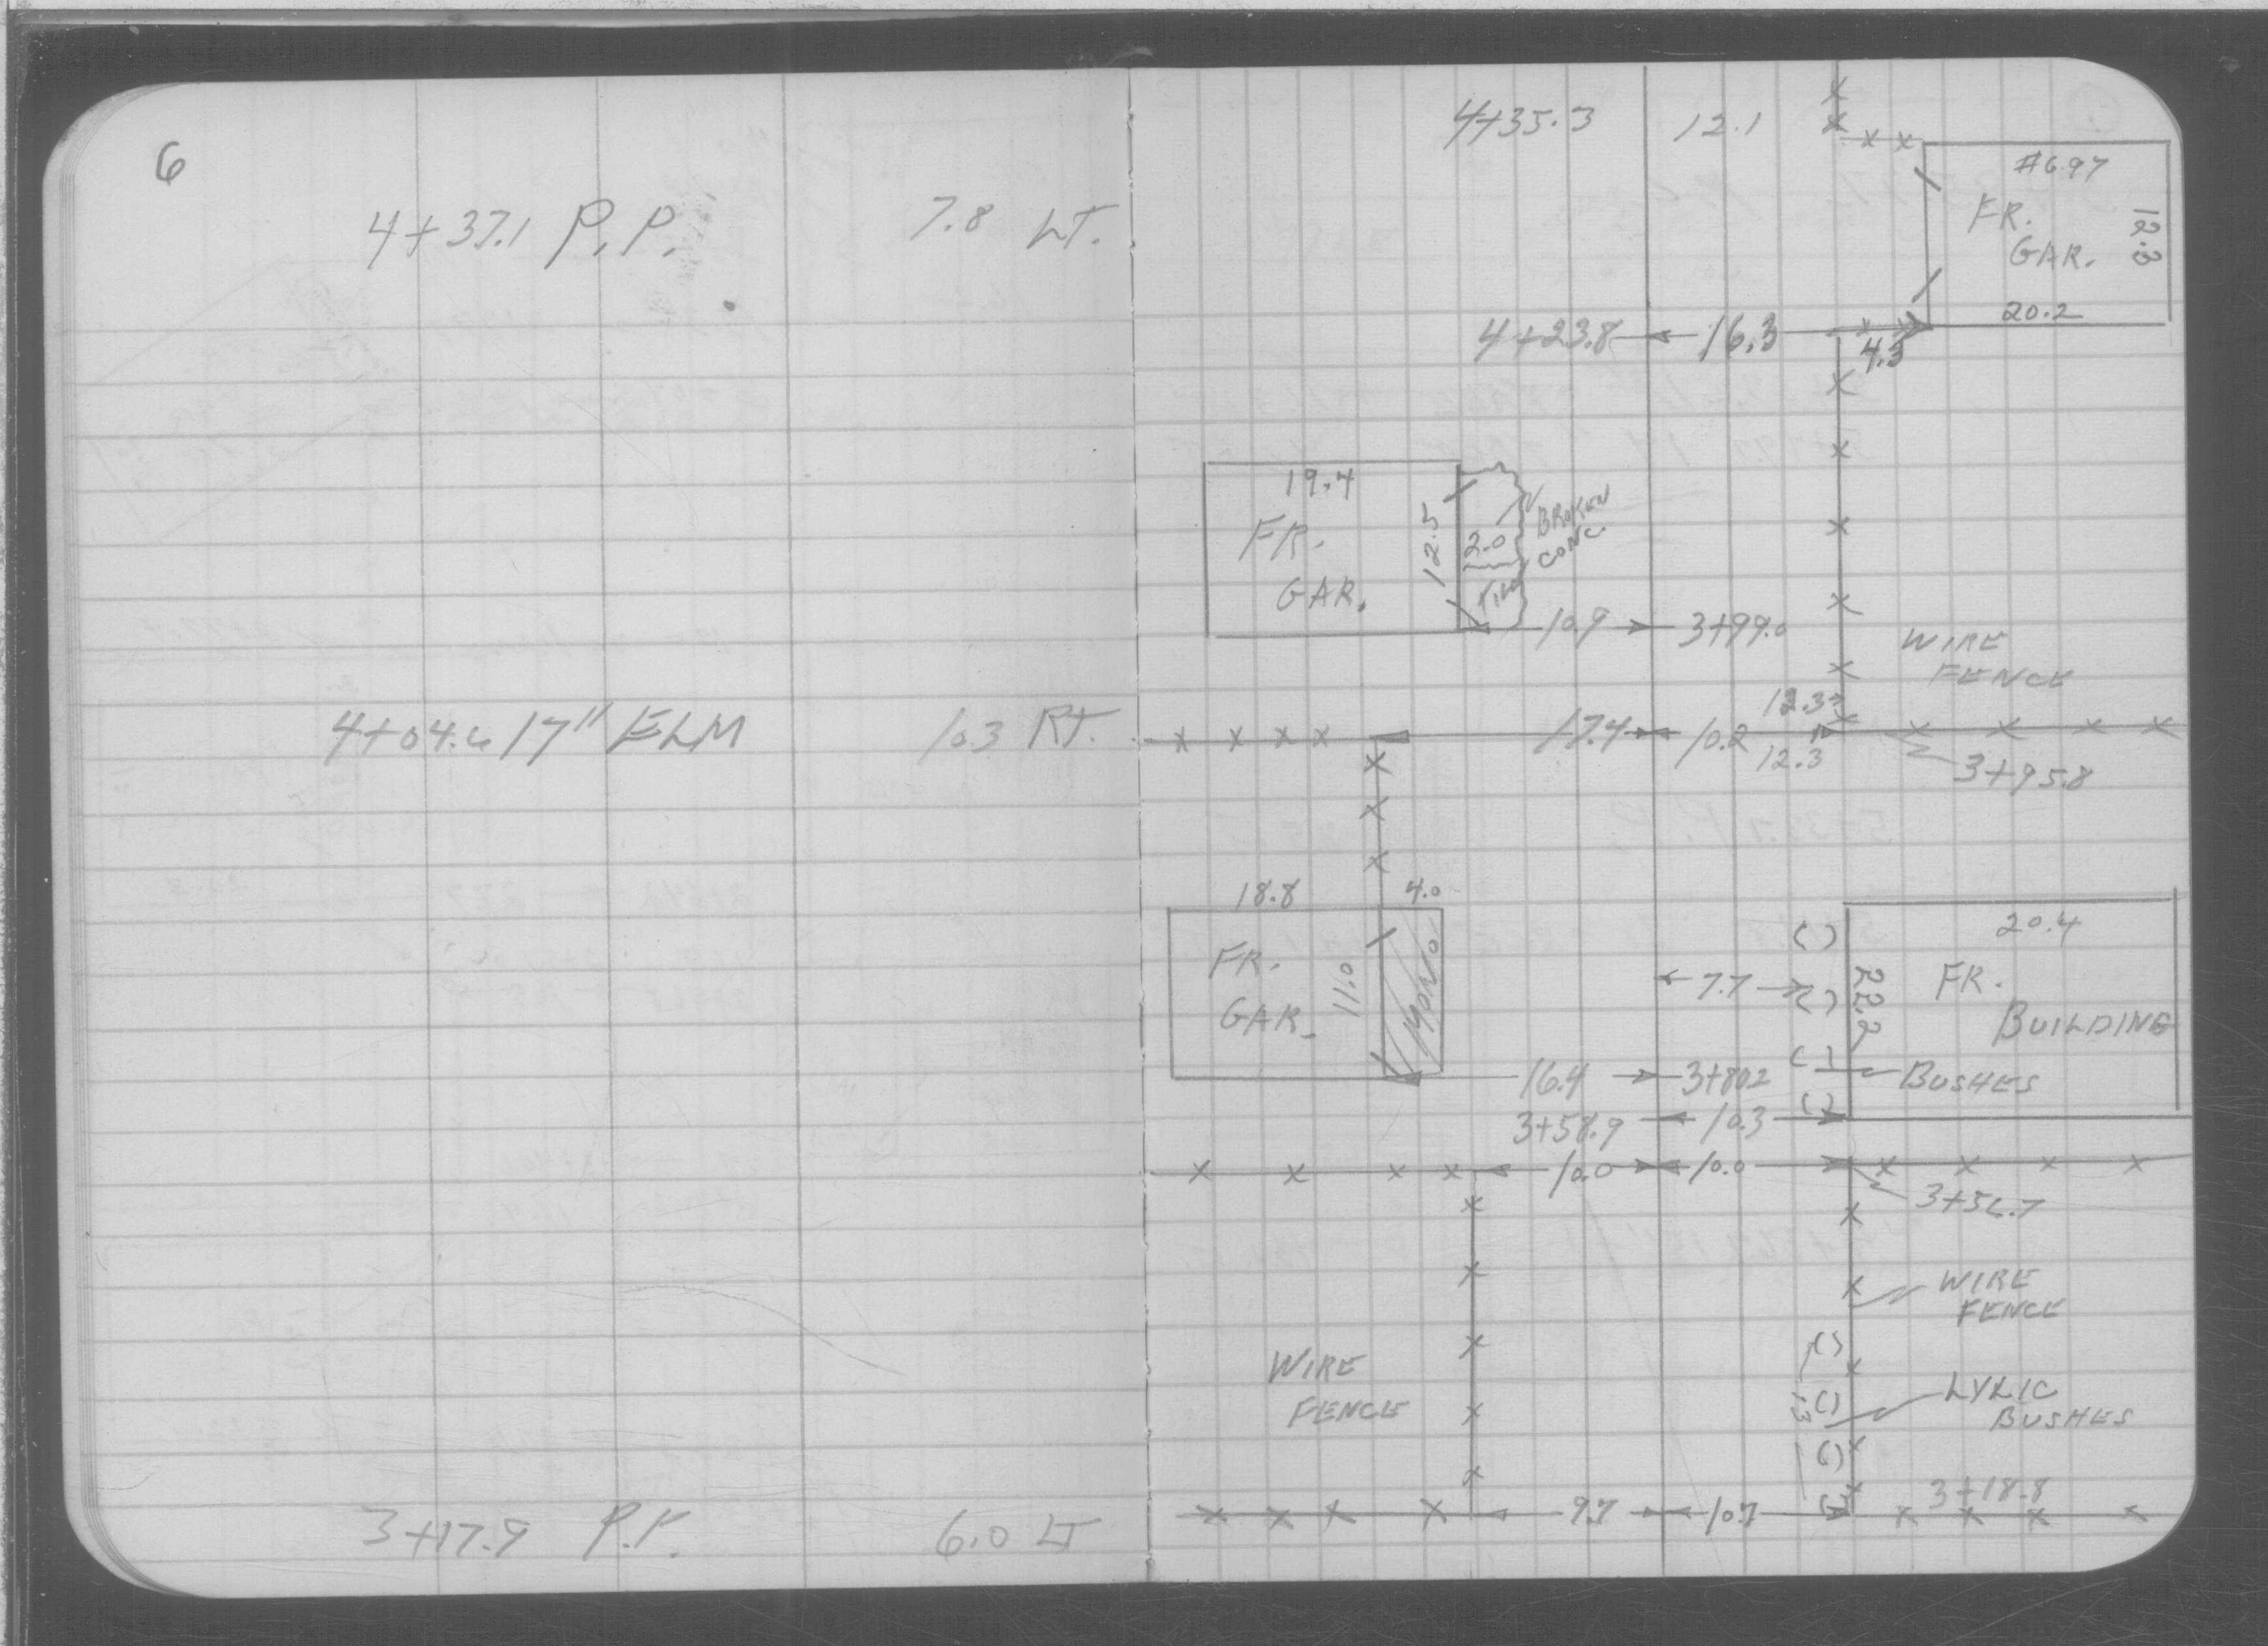 6
4+37.1 P.P. 7.8 LT.
4+04.6 17" ELM 10.3 RT.
3+17.9 P.P. 6.0 LT
4+35.3 12.1
#697
FR.
GAR.
12.3
20.2
4+23.8 16.3 4.3
19.4
FR.
GAR.
12.5
2.0
BROKEN
CONC.
10.9 3+99.0
WIRE
FENCE
12.3
17.4 10.2 12.3
3+95.8
18.8 4.0
FR.
GAR.
11.0
MONO.
20.4
FR.
BUILDING
22.2
7.7
BUSHES
16.4 3+80.2
3+58.9 10.3
10.0 10.0
3+56.7
WIRE
FENCE
WIRE
FENCE
LYLIC
BUSHES
1.3
3+18.8
9.7 10.7